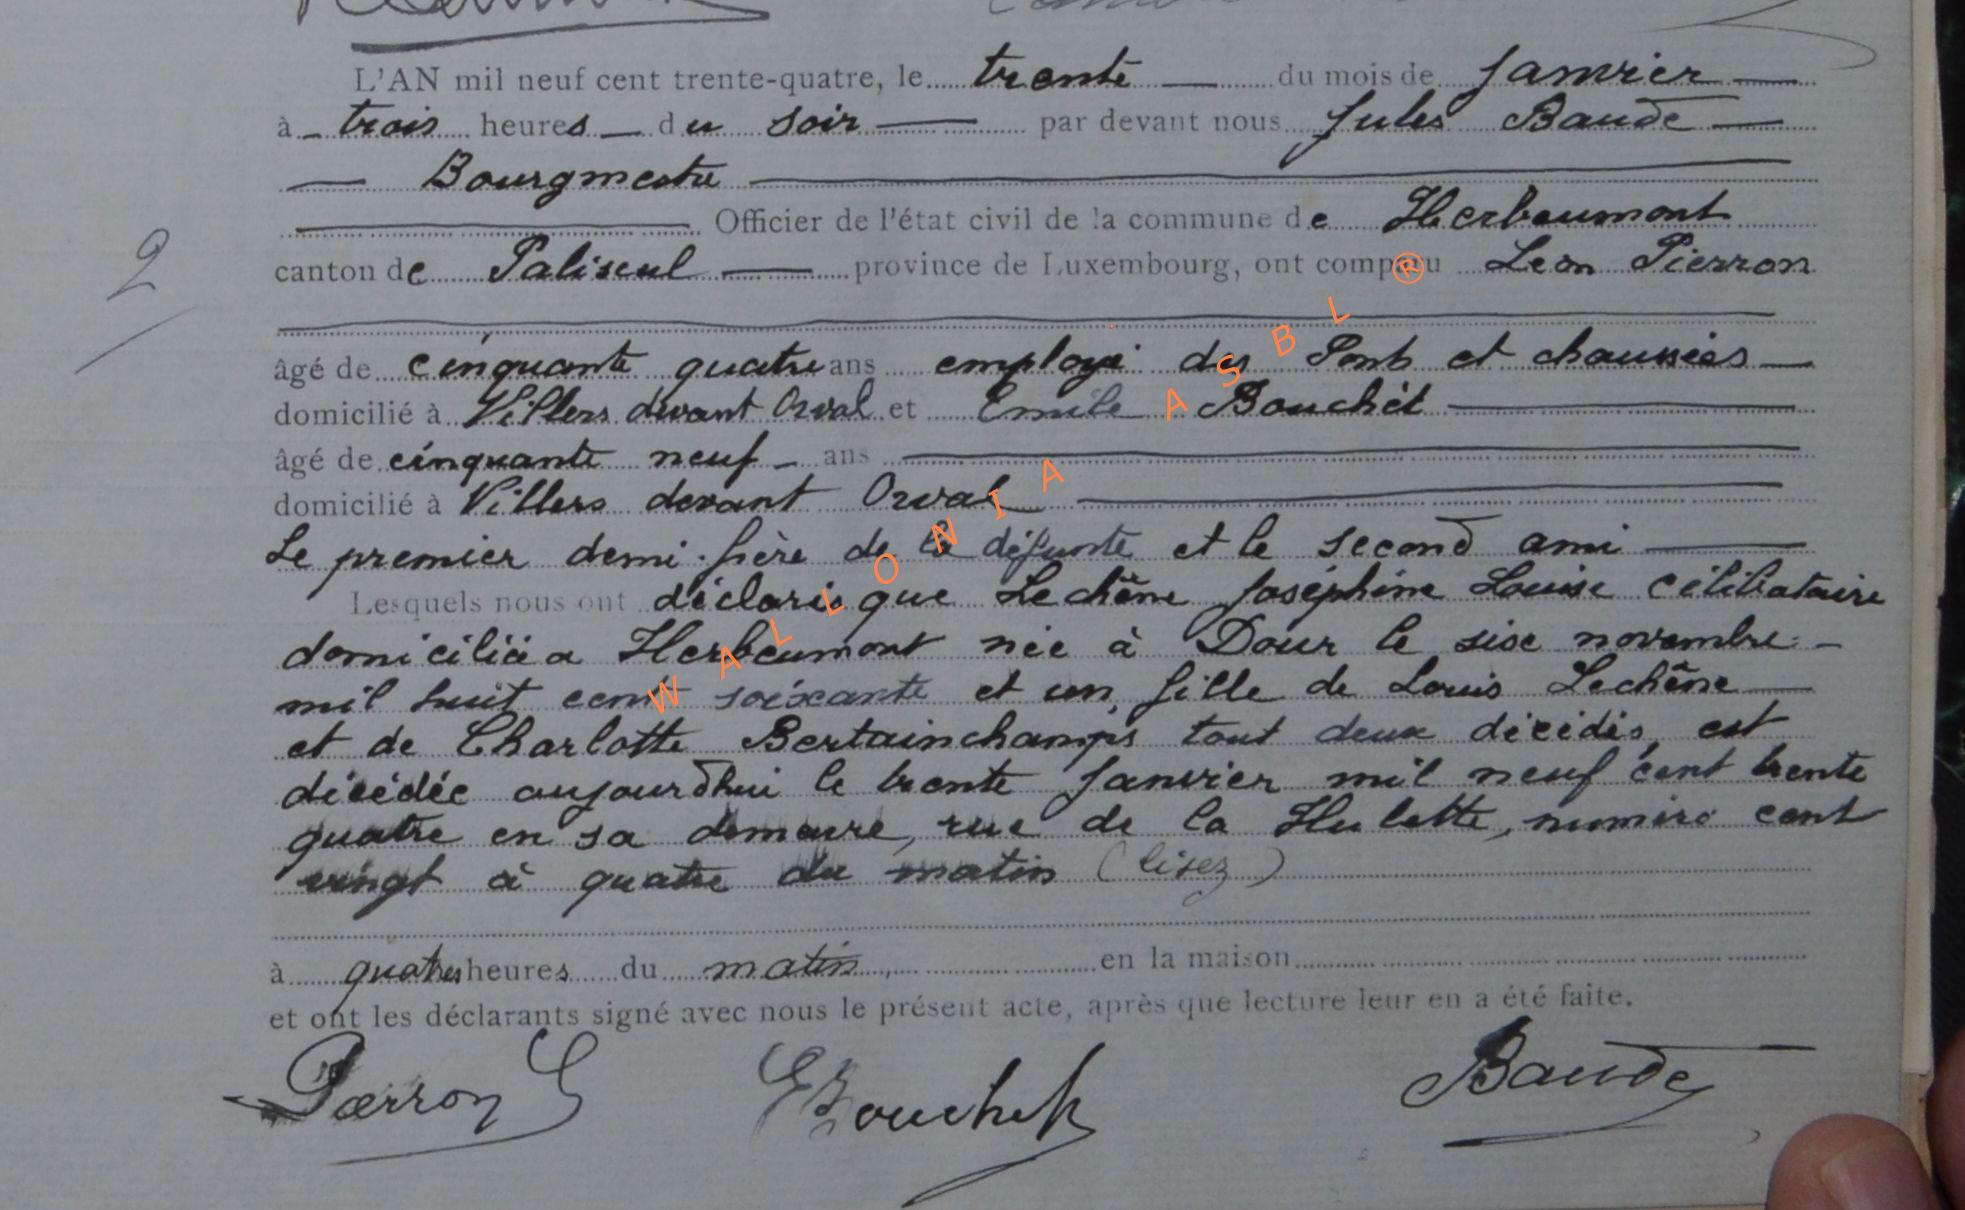 L'AN mil neuf cent trente-quatre, le trente du mois de Janvier
à trois heures du soir par devant nous Jules Baude
Bourgmestre
Officier de l'état civil de la commune de Herbeumont
2
canton de Paliseul province de Luxembourg, ont comparu Léon Pierron
âgé de cinquante quatre ans employé des Ponts et chaussées
domicilié à Villers devant Orval et Emile Bouchêt
âgé de cinquante neuf ans
domicilié à Villers devant Orval
Le premier demi-frère de la défunte et le second ami
Lesquels nous ont déclaré que Lechêne Joséphine Louise célibataire
domiciliée a Herbeumont née à Dour le six novembre
mil huit cent soixante et un, fille de Louis Lechêne
et de Charlotte Bertainchamps tout deux décédés, est
décédée aujourd'hui le trente Janvier mil neuf cent trente
quatre en sa demeure, rue de la Hulette, numéro cent
vingt à quatre du matin (lisez)
à quatres heures du matin en la maison
et ont les déclarants signé avec nous le présent acte, après que lecture leur en a été faite.
Pierron L EBouchet Baude
WALLONIA ASBL ®